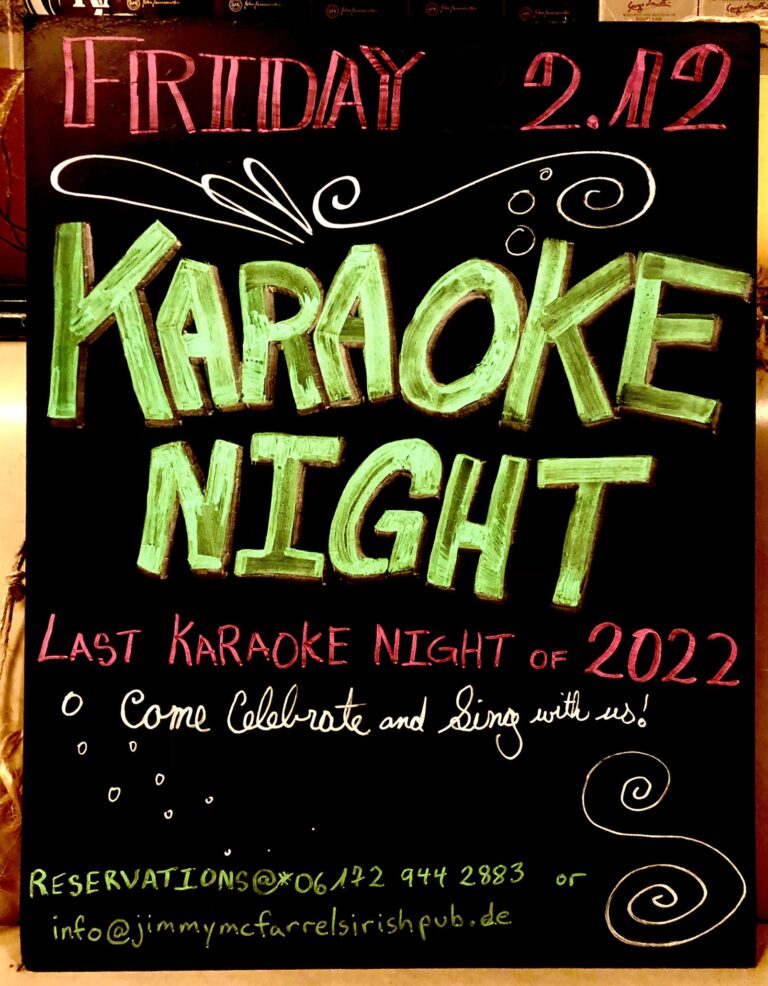 FRIDAY 2.12
KARAOKE
NIGHT
LAST KARAOKE NIGHT OF 2022
Come Celebrate and Sing with us!
RESERVATIONS@*06172 944 2883 or
info@jimmymcfarrelsirishpub.de